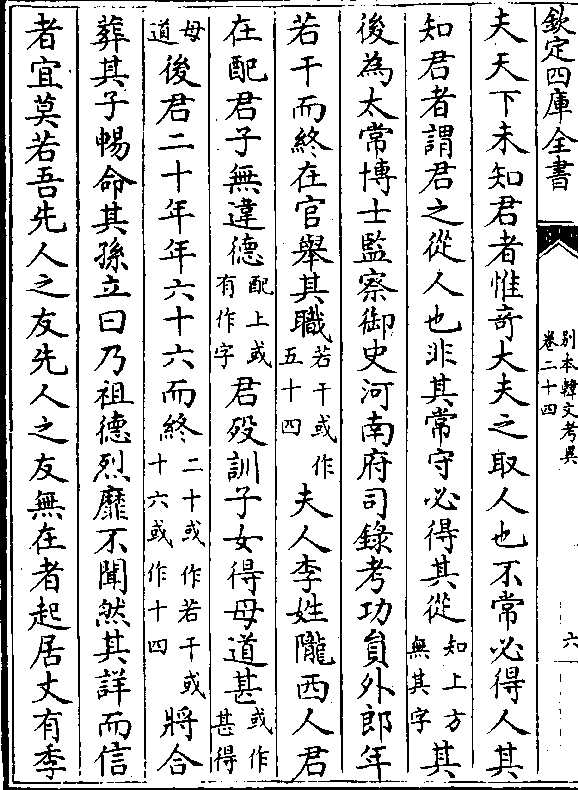 欽定四庫全書
別本韓文考異
卷二十四
六
夫天下未知君者惟竒大夫之取人也不常必得人其
知君者謂君之從人也非其常守必得其從知上方無其字其
後為太常博士監察御史河南府司錄考功員外郎年
若干而終在官舉其職若干或作五十四夫人李姓隴西人君
在配君子無違德配上或有作字君歿訓子女得母道甚或作甚得
母道後君二十年年六十六而終二十或作若干或十六或作十四將合
葬其子暢命其孫立曰乃祖德烈靡不聞然其詳而信
者宜莫若吾先人之友先人之友無在者起居丈有季